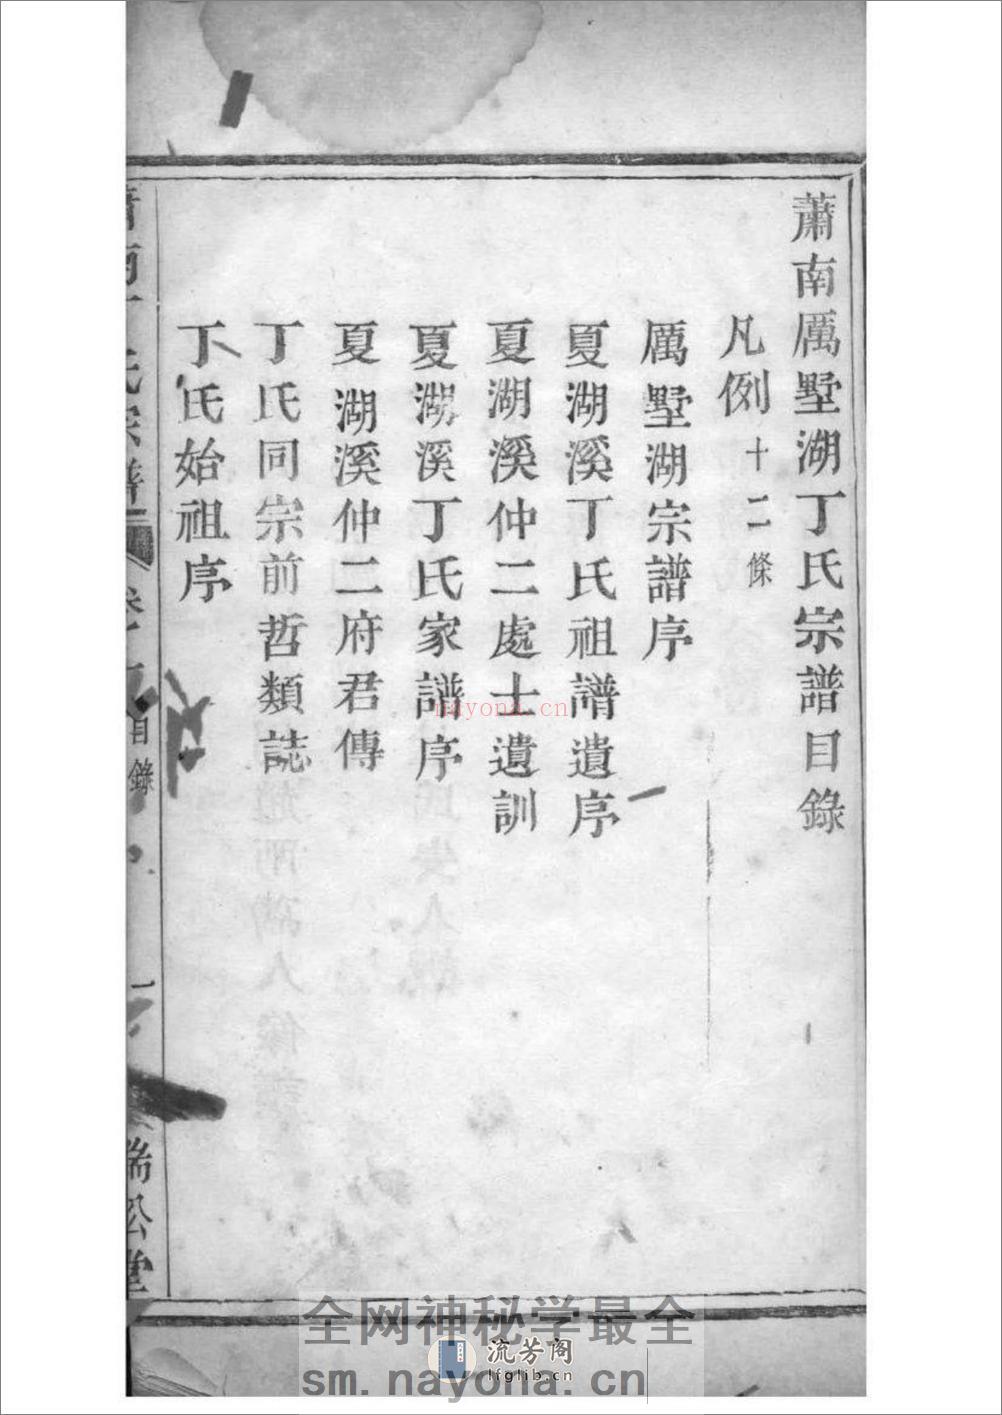 蕭南厲墅湖丁氏宗譜目錄
凡例十二條
厲墅湖宗譜序
夏湖溪丁氏祖譜遺序
夏湖溪仲二處士遺訓
夏湖溪丁氏家譜序
夏湖溪仲二府君傳
丁氏同宗前哲類誌
丁氏始祖序
蕭南丁氏宗譜
目錄
nayona.cn
全网神秘学最全
流芳阁
lfglib.cn
sm.nayona.cn